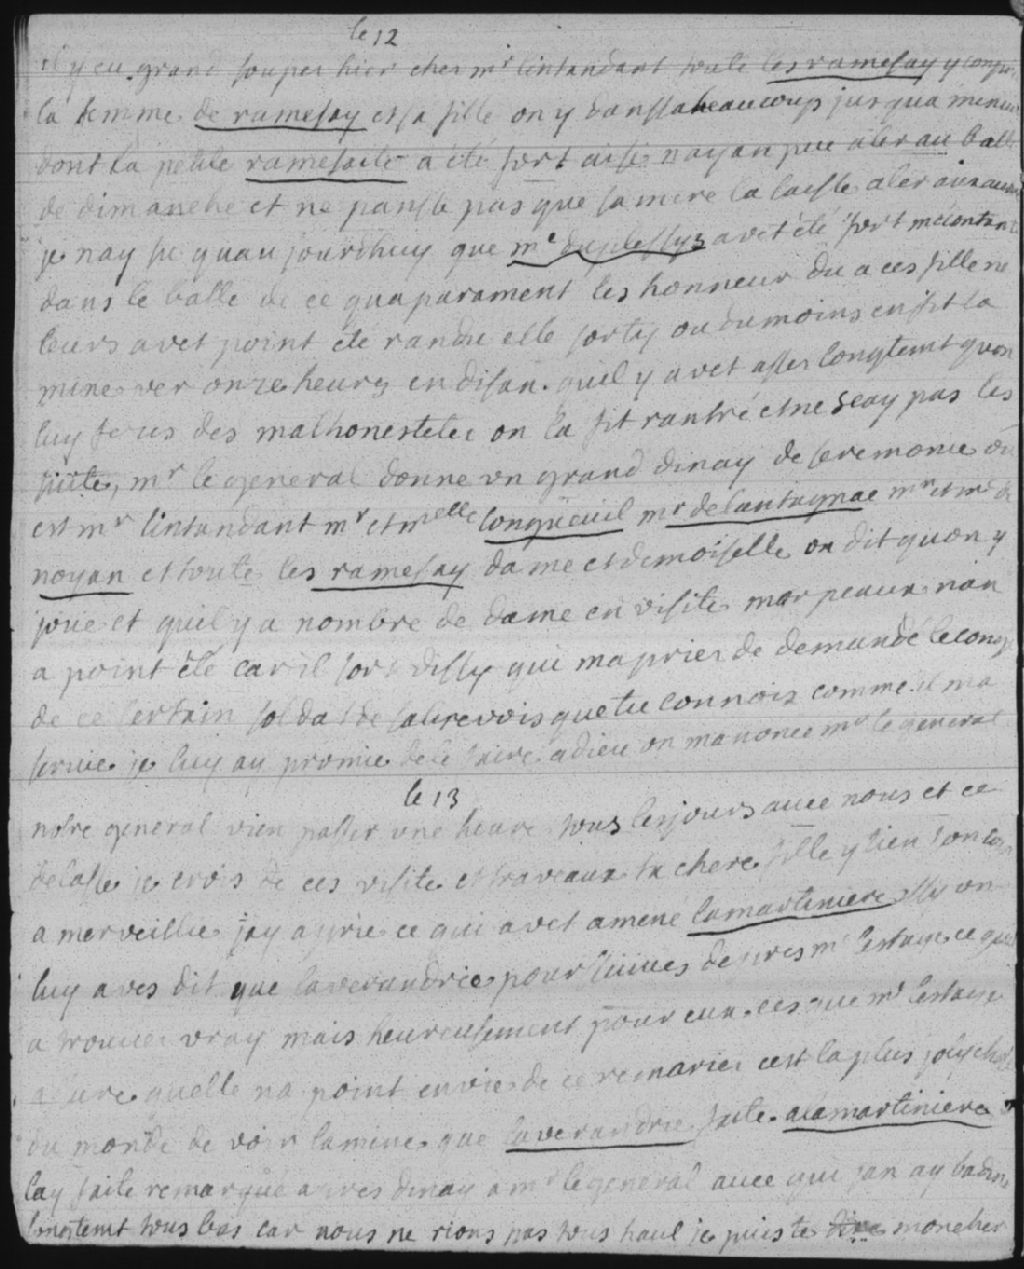 le 12
il y eu grand souper hier cher mr lintandant toute les ramesay y compri
la femme de ramesay et sa fille on y danssa beaucoup jusqua menui
dont la petite ramesaite a été fort aise nayan peu aler au balle
de dimanche et ne pansse pas que sa mere la laisse aler aux autre
je nay su quau jourdhuy que me duplessys avet été fort mécontant
dans le balle de ce quaparament les honneur du a ces fille ne
leurs avet point été randu elle sortis ou du moins en fit la
mine ver onze heures en disan quil y avet asses longtemt quon
luy ferois des malhonestetee on la fit rantré et ne scay pas les
suite, mr le general donne un grand dinay de seremonie ou
est mr lintandant mr et melle longueuil mr de lantagnac mr et me de
noyan et toute les ramesay dame et demoiselle on dit quon y
joue et quil y a nombre de dame en visite mar peaux nan
a point été car il sor dissy qui ma prier de demandé le congé
de ce sertain soldat de sabrevois que tu connois comme il ma
servie je luy ay promie de le faire adieu on manonce mr le general
le 13
notre general vien passer une heure tous les jours avec nous et ce
delasse je crois de ces visite et travaux ta chere fille y tien son coin
a merveille jay aprie ce qui avet amené lamartiniere issy on
luy aves dit que laverandrie pour suives de pres me lestage ce quil
a trouver vray mais heureusement pour eux ces que me lestage
asure quelle na point envie de ce remarier cest la plus joly chose
du monde de voir la mine que laverandrie faite a lamartiniere
lay faite remarqué apres dinay a mr le general avec qui jan ay badiné
longtemt tous bas car nous ne rions pas tous haut je puis te dire mon cher